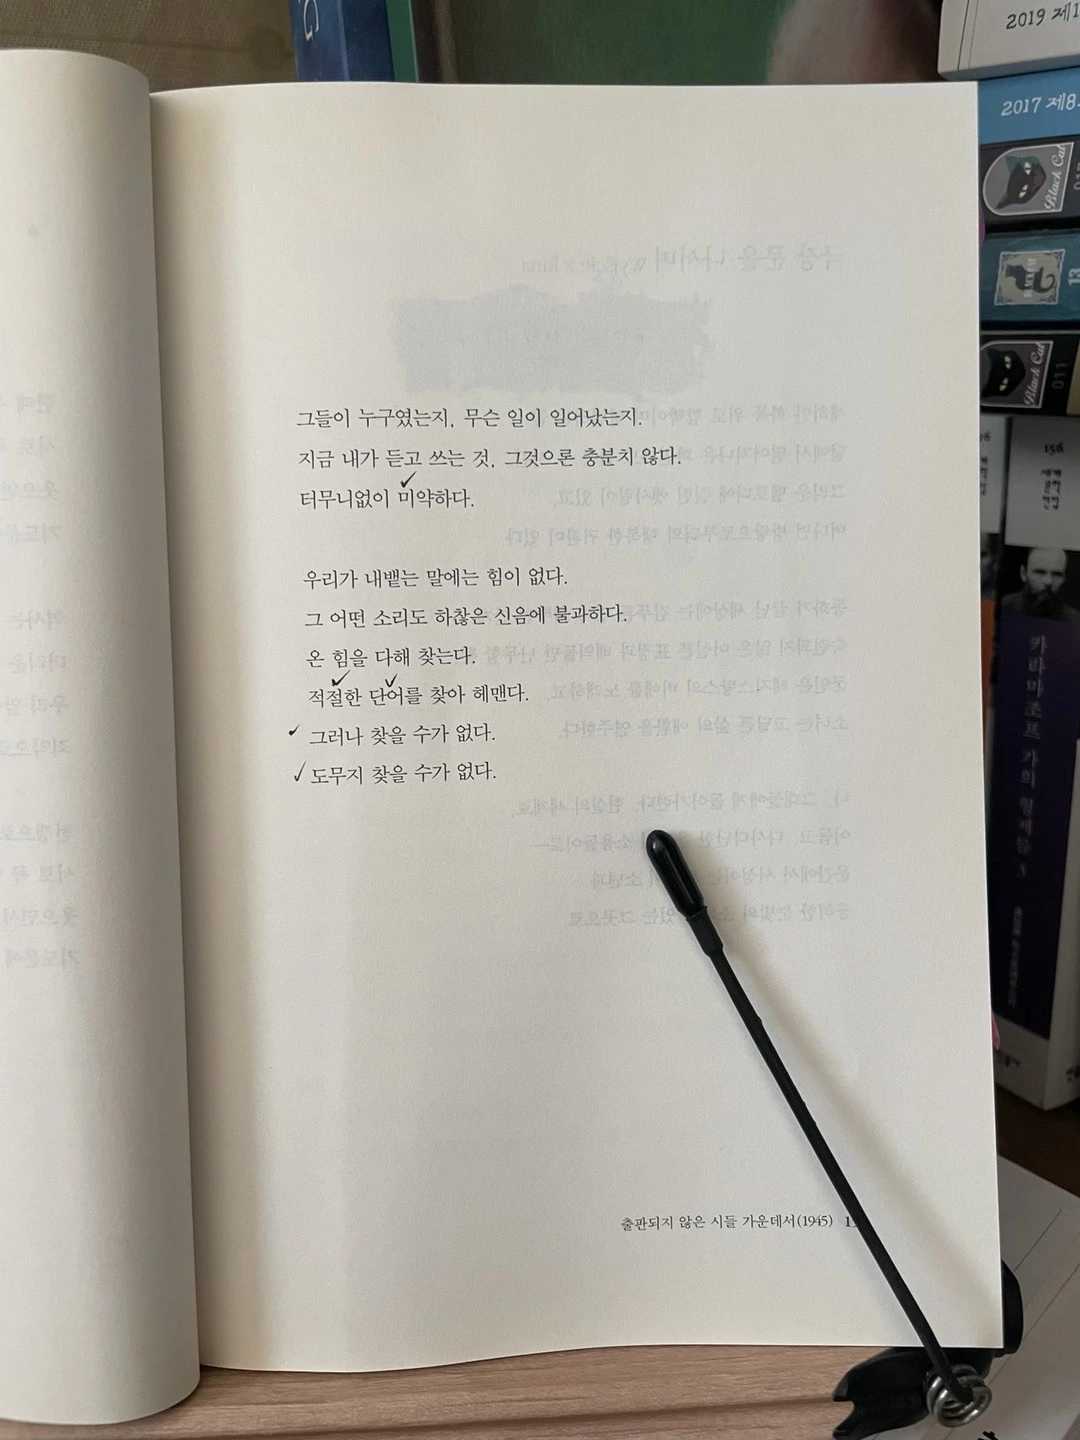 2019 제1
2017 제8
Black Cat
13
Black Cat
011
156
세계
문학
전집
카라마조프 가의 형제들 3
그들이 누구였는지, 무슨 일이 일어났는지.
지금 내가 듣고 쓰는 것, 그것으론 충분치 않다.
터무니없이 미약하다.
우리가 내뱉는 말에는 힘이 없다.
그 어떤 소리도 하찮은 신음에 불과하다.
온 힘을 다해 찾는다.
적절한 단어를 찾아 헤맨다.
그러나 찾을 수가 없다.
도무지 찾을 수가 없다.
출판되지 않은 시들 가운데서(1945)